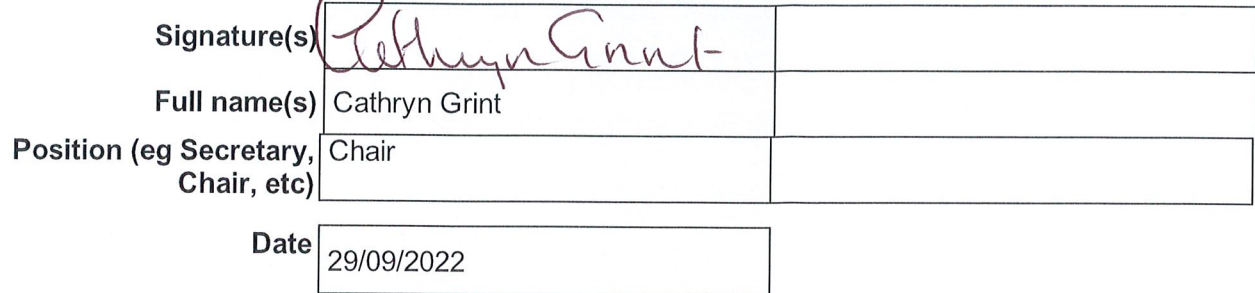 Signature(s) Cathryn Grint
Full name(s) Cathryn Grint
Position (eg Secretary, Chair
Chair, etc)
Date
29/09/2022